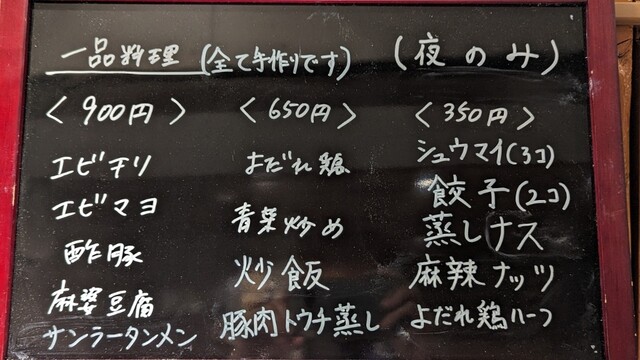 一品料理 (全て手作りです) (夜のみ)
<900円>
エビチリ
エビマヨ
酢豚
麻婆豆腐
サンラータンメン
<650円>
よだれ鶏
青菜炒め
炒飯
豚肉トウチ蒸し
<350円>
シュウマイ(3コ)
餃子(2コ)
蒸しナス
麻辣ナッツ
よだれ鶏ハーフ